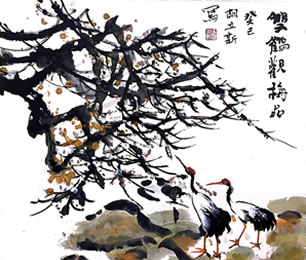 雙鶴觀梅品
癸巳
胡立新
寫